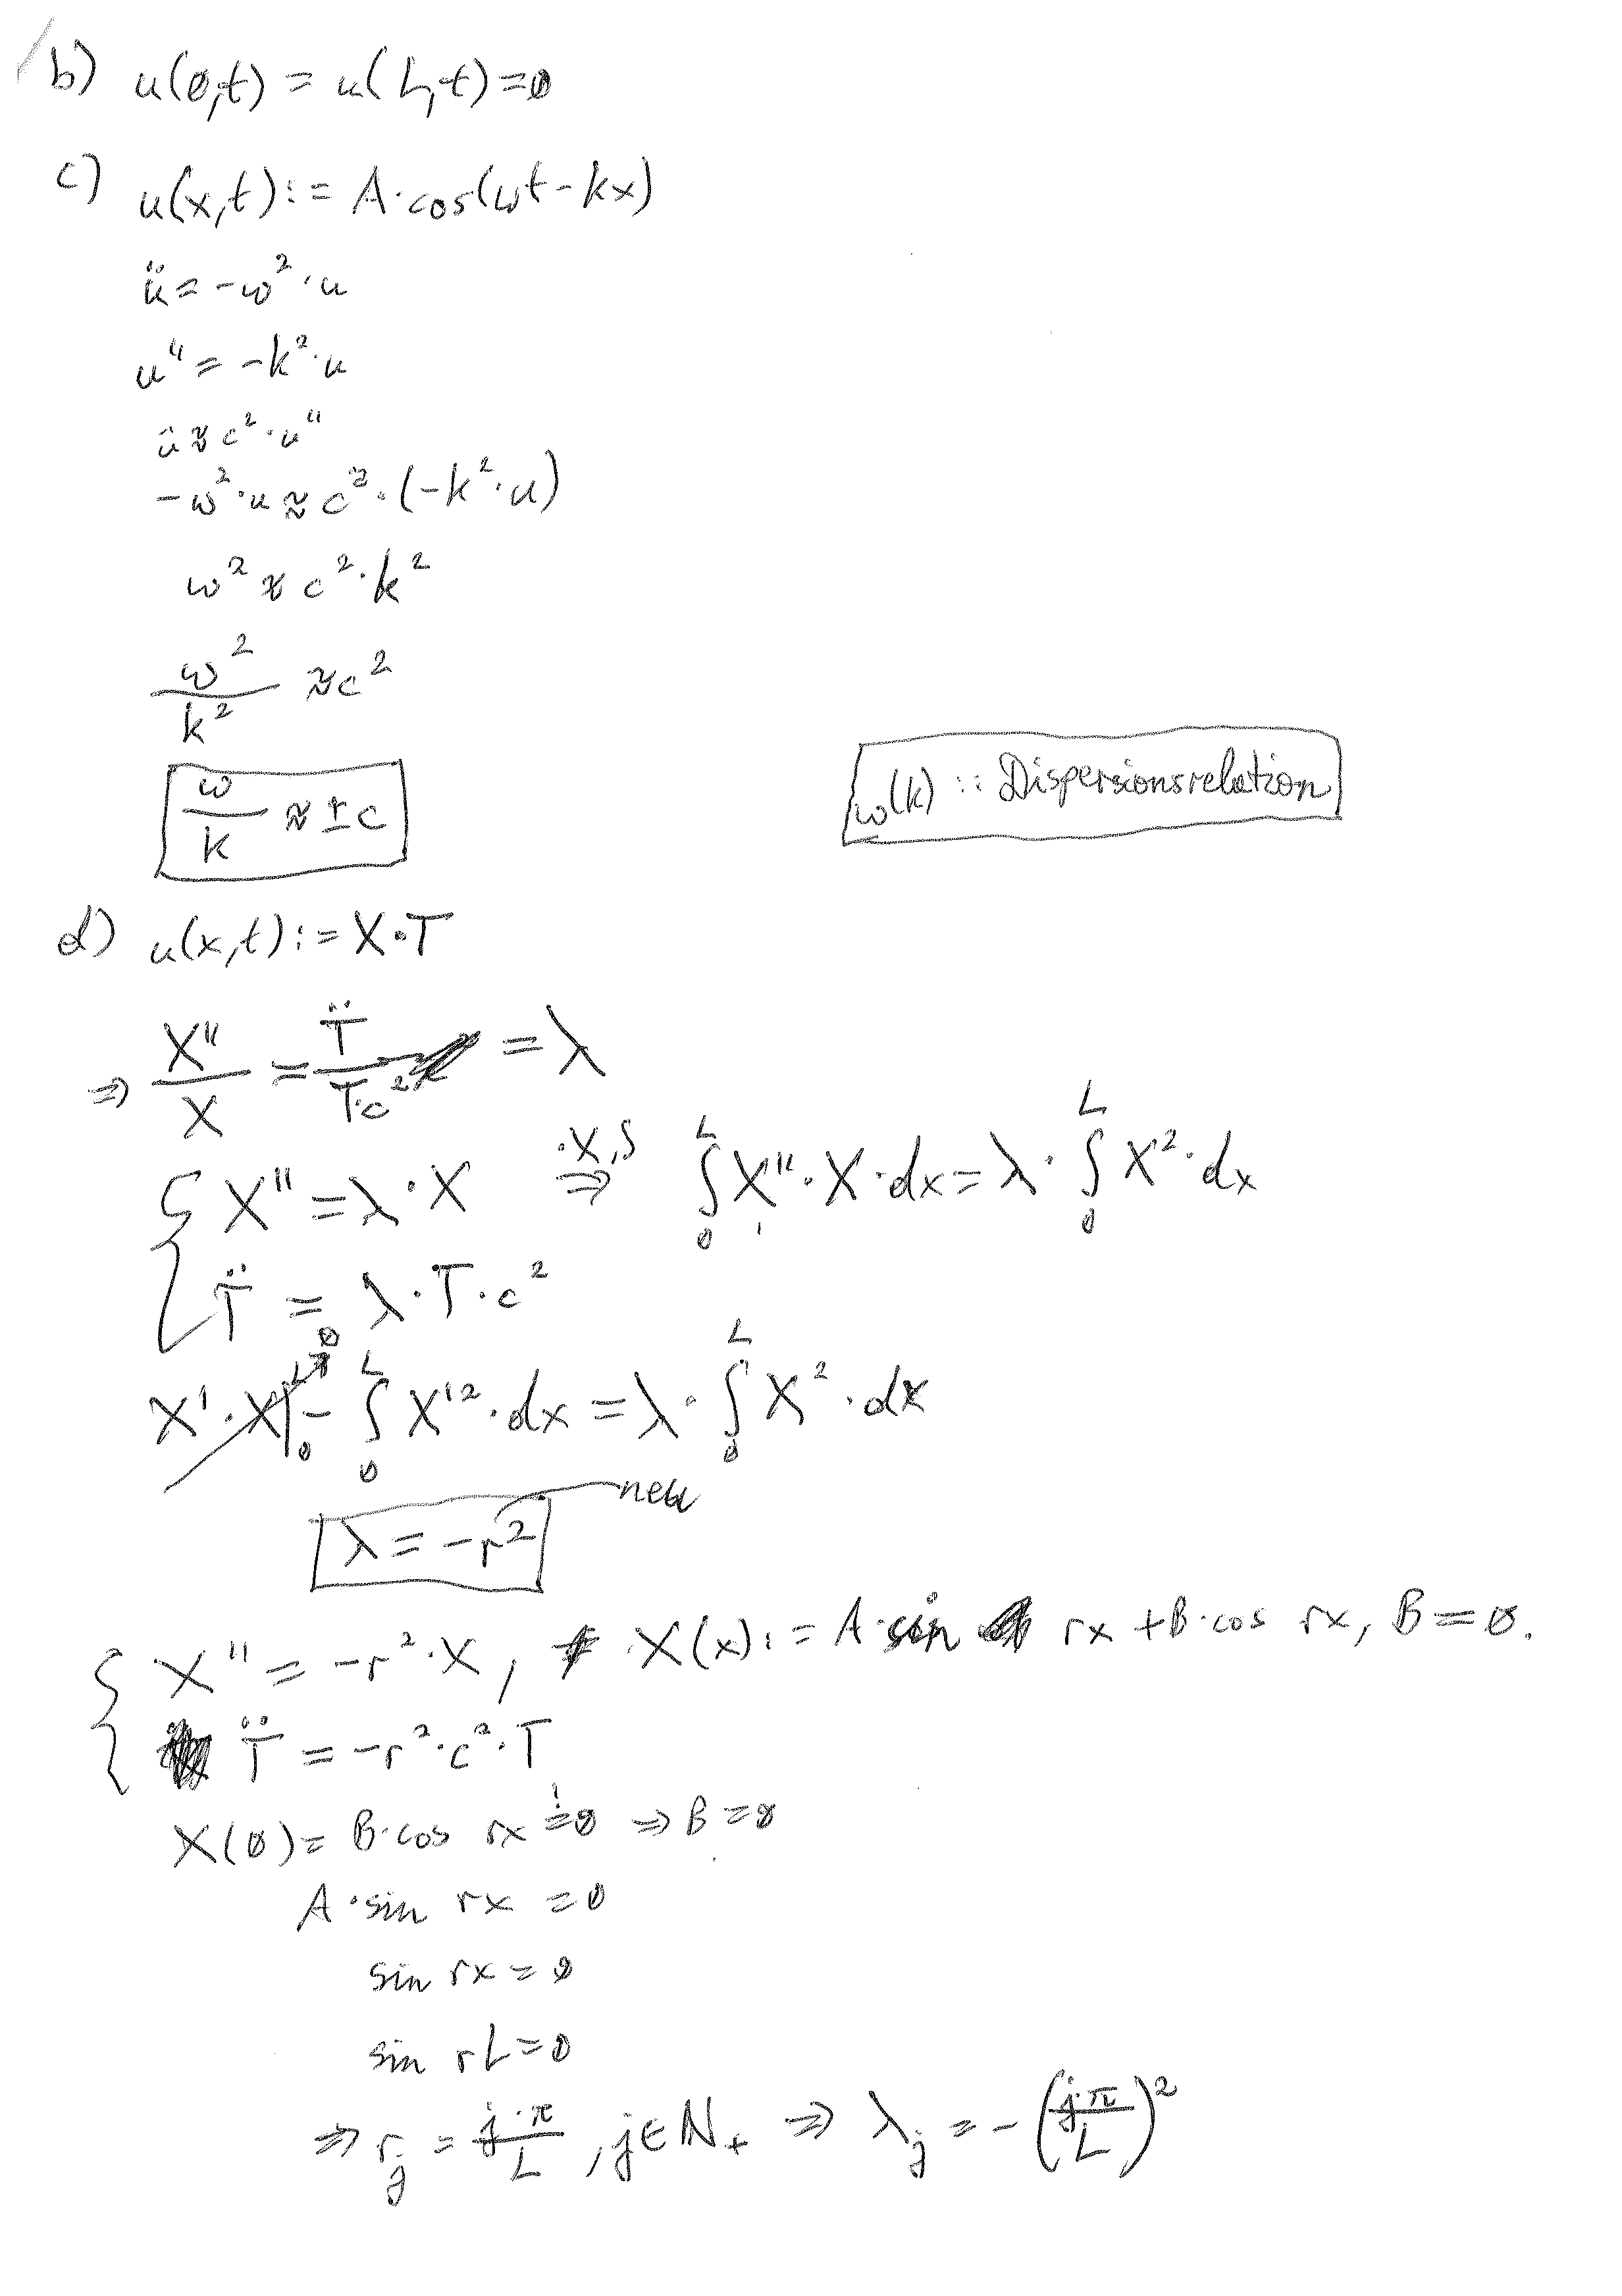 b) u(0,t) = u(L,t) = 0
c) u(x,t) := A·cos(ωt - kx)
ü = -ω²·u
u'' = -k²·u
ü ≈ c²·u''
-ω²·u ≈ c²·(-k²·u)
ω² ≈ c²·k²
ω²/k² ≈ c²
ω/k ≈ ±c
ω(k) :: Dispersionsrelation
d) u(x,t) := X·T
⇒ X''/X = T̈/(T·c²) = λ
{ X'' = λ·X ·X,∫ ⇒ ∫₀ᴸ X''·X·dx = λ·∫₀ᴸ X²·dx
{ T̈ = λ·T·c²
X'·X|₀ᴸ → 0 - ∫₀ᴸ X'²·dx = λ·∫₀ᴸ X²·dx
λ = -r² neu
{ X'' = -r²·X, X(x) := A·sin rx + B·cos rx, B = 0.
{ T̈ = -r²·c²·T
X(0) = B·cos rx =! 0 ⇒ B = 0
A·sin rx = 0
sin rx = 0
sin rL = 0
⇒ r_j = j·π/L, j∈ℕ₊ ⇒ λ_j = -(j·π/L)²